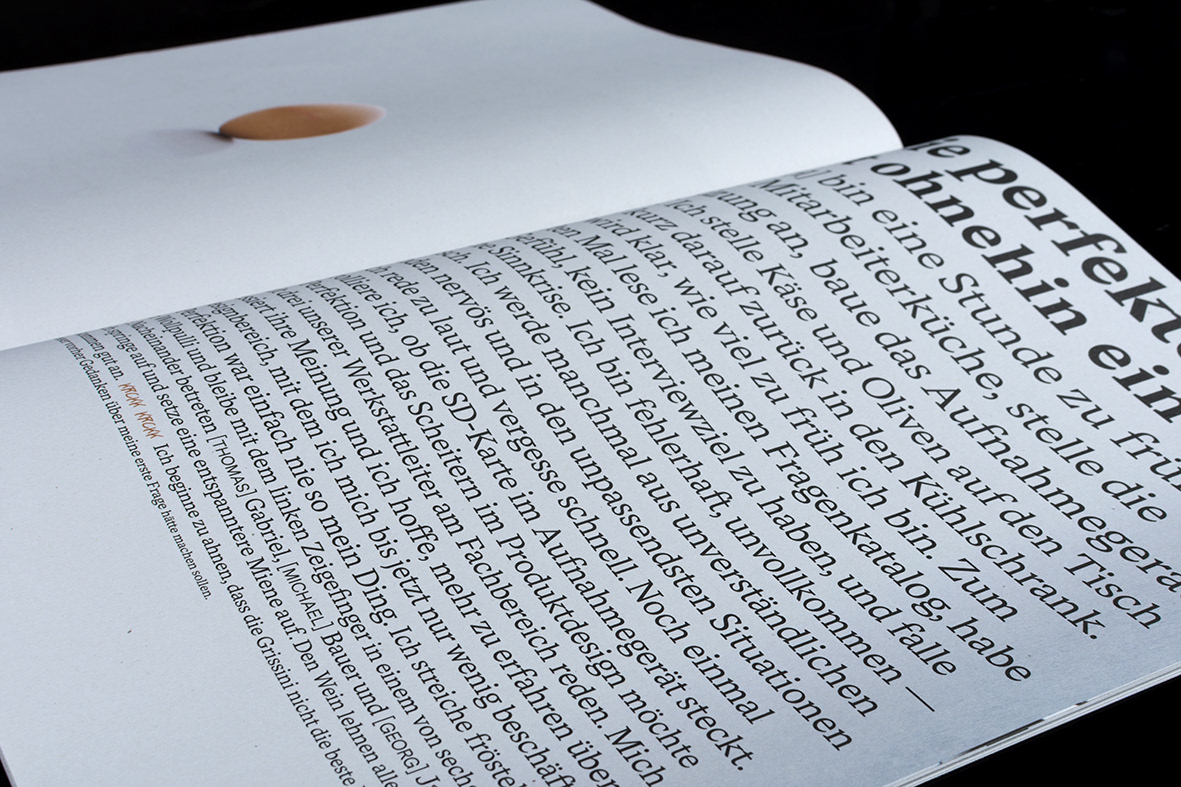 perfekt
ohnehin ein
bin eine Stunde zu frü
Mitarbeiterküche, stelle die
gung an, baue das Aufnahmegerä
Ich stelle Käse und Oliven auf den Tisch
kurz darauf zurück in den Kühlschrank.
wird klar, wie viel zu früh ich bin. Zum
en Mal lese ich meinen Fragenkatalog, habe
efühl, kein Interviewziel zu haben, und falle
e Sinnkrise. Ich bin fehlerhaft, unvollkommen —
ch. Ich werde manchmal aus unverständlichen
den nervös und in den unpassendsten Situationen
h rede zu laut und vergesse schnell. Noch einmal
lliere ich, ob die SD-Karte im Aufnahmegerät steckt.
erfektion und das Scheitern im Produktdesign möchte
frei unserer Werkstattleiter am Fachbereich reden. Mich
siert ihre Meinung und ich hoffe, mehr zu erfahren über
signbereich, mit dem ich mich bis jetzt nur wenig beschäft
erfektion war einfach nie so mein Ding. Ich streiche fröste
Wollpulli und bleibe mit dem linken Zeigefinger in einem von sech
Nacheinander betreten [THOMAS] Gabriel, [MICHAEL] Bauer und [GEORG] J
auf und setze eine entspanntere Miene auf. Den Wein lehnen alle
mmen gut an. Ich beginne zu ahnen, dass die Grissini nicht die beste
Gedanken über meine erste Frage hätte machen sollen.